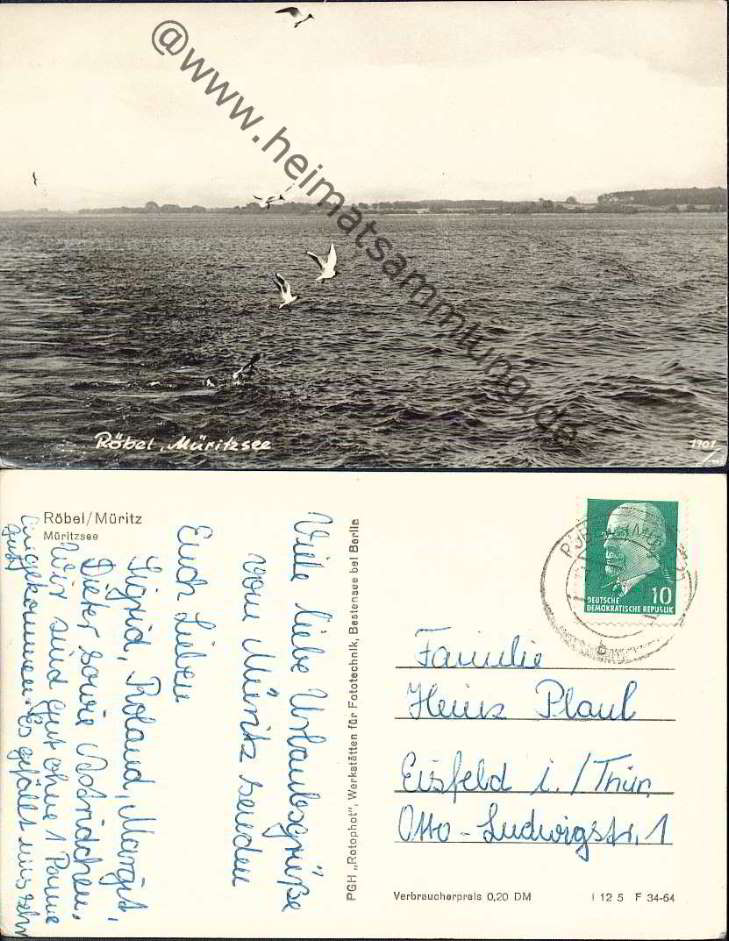 @www.heimatsammlung.de
Röbel, Müritzsee
1901
Röbel/Müritz
Müritzsee
Viele liebe Urlaubsgrüße
vom Müritz senden
Euch Lieben
Sigrid, Roland, Margit,
Dieter sowie
Wir sind gut ohne 1 Panne
angekommen. Es gefällt uns sehr
gut
PGH „Rotophot", Werkstätten für Fototechnik, Bestensee bei Berlin
10
DEUTSCHE
DEMOKRATISCHE REPUBLIK
b
Familie
Heinz Plaul
Eisfeld i./Thür.
Otto-Ludwigstr. 1
Verbraucherpreis 0,20 DM
I 12 5 F 34-64